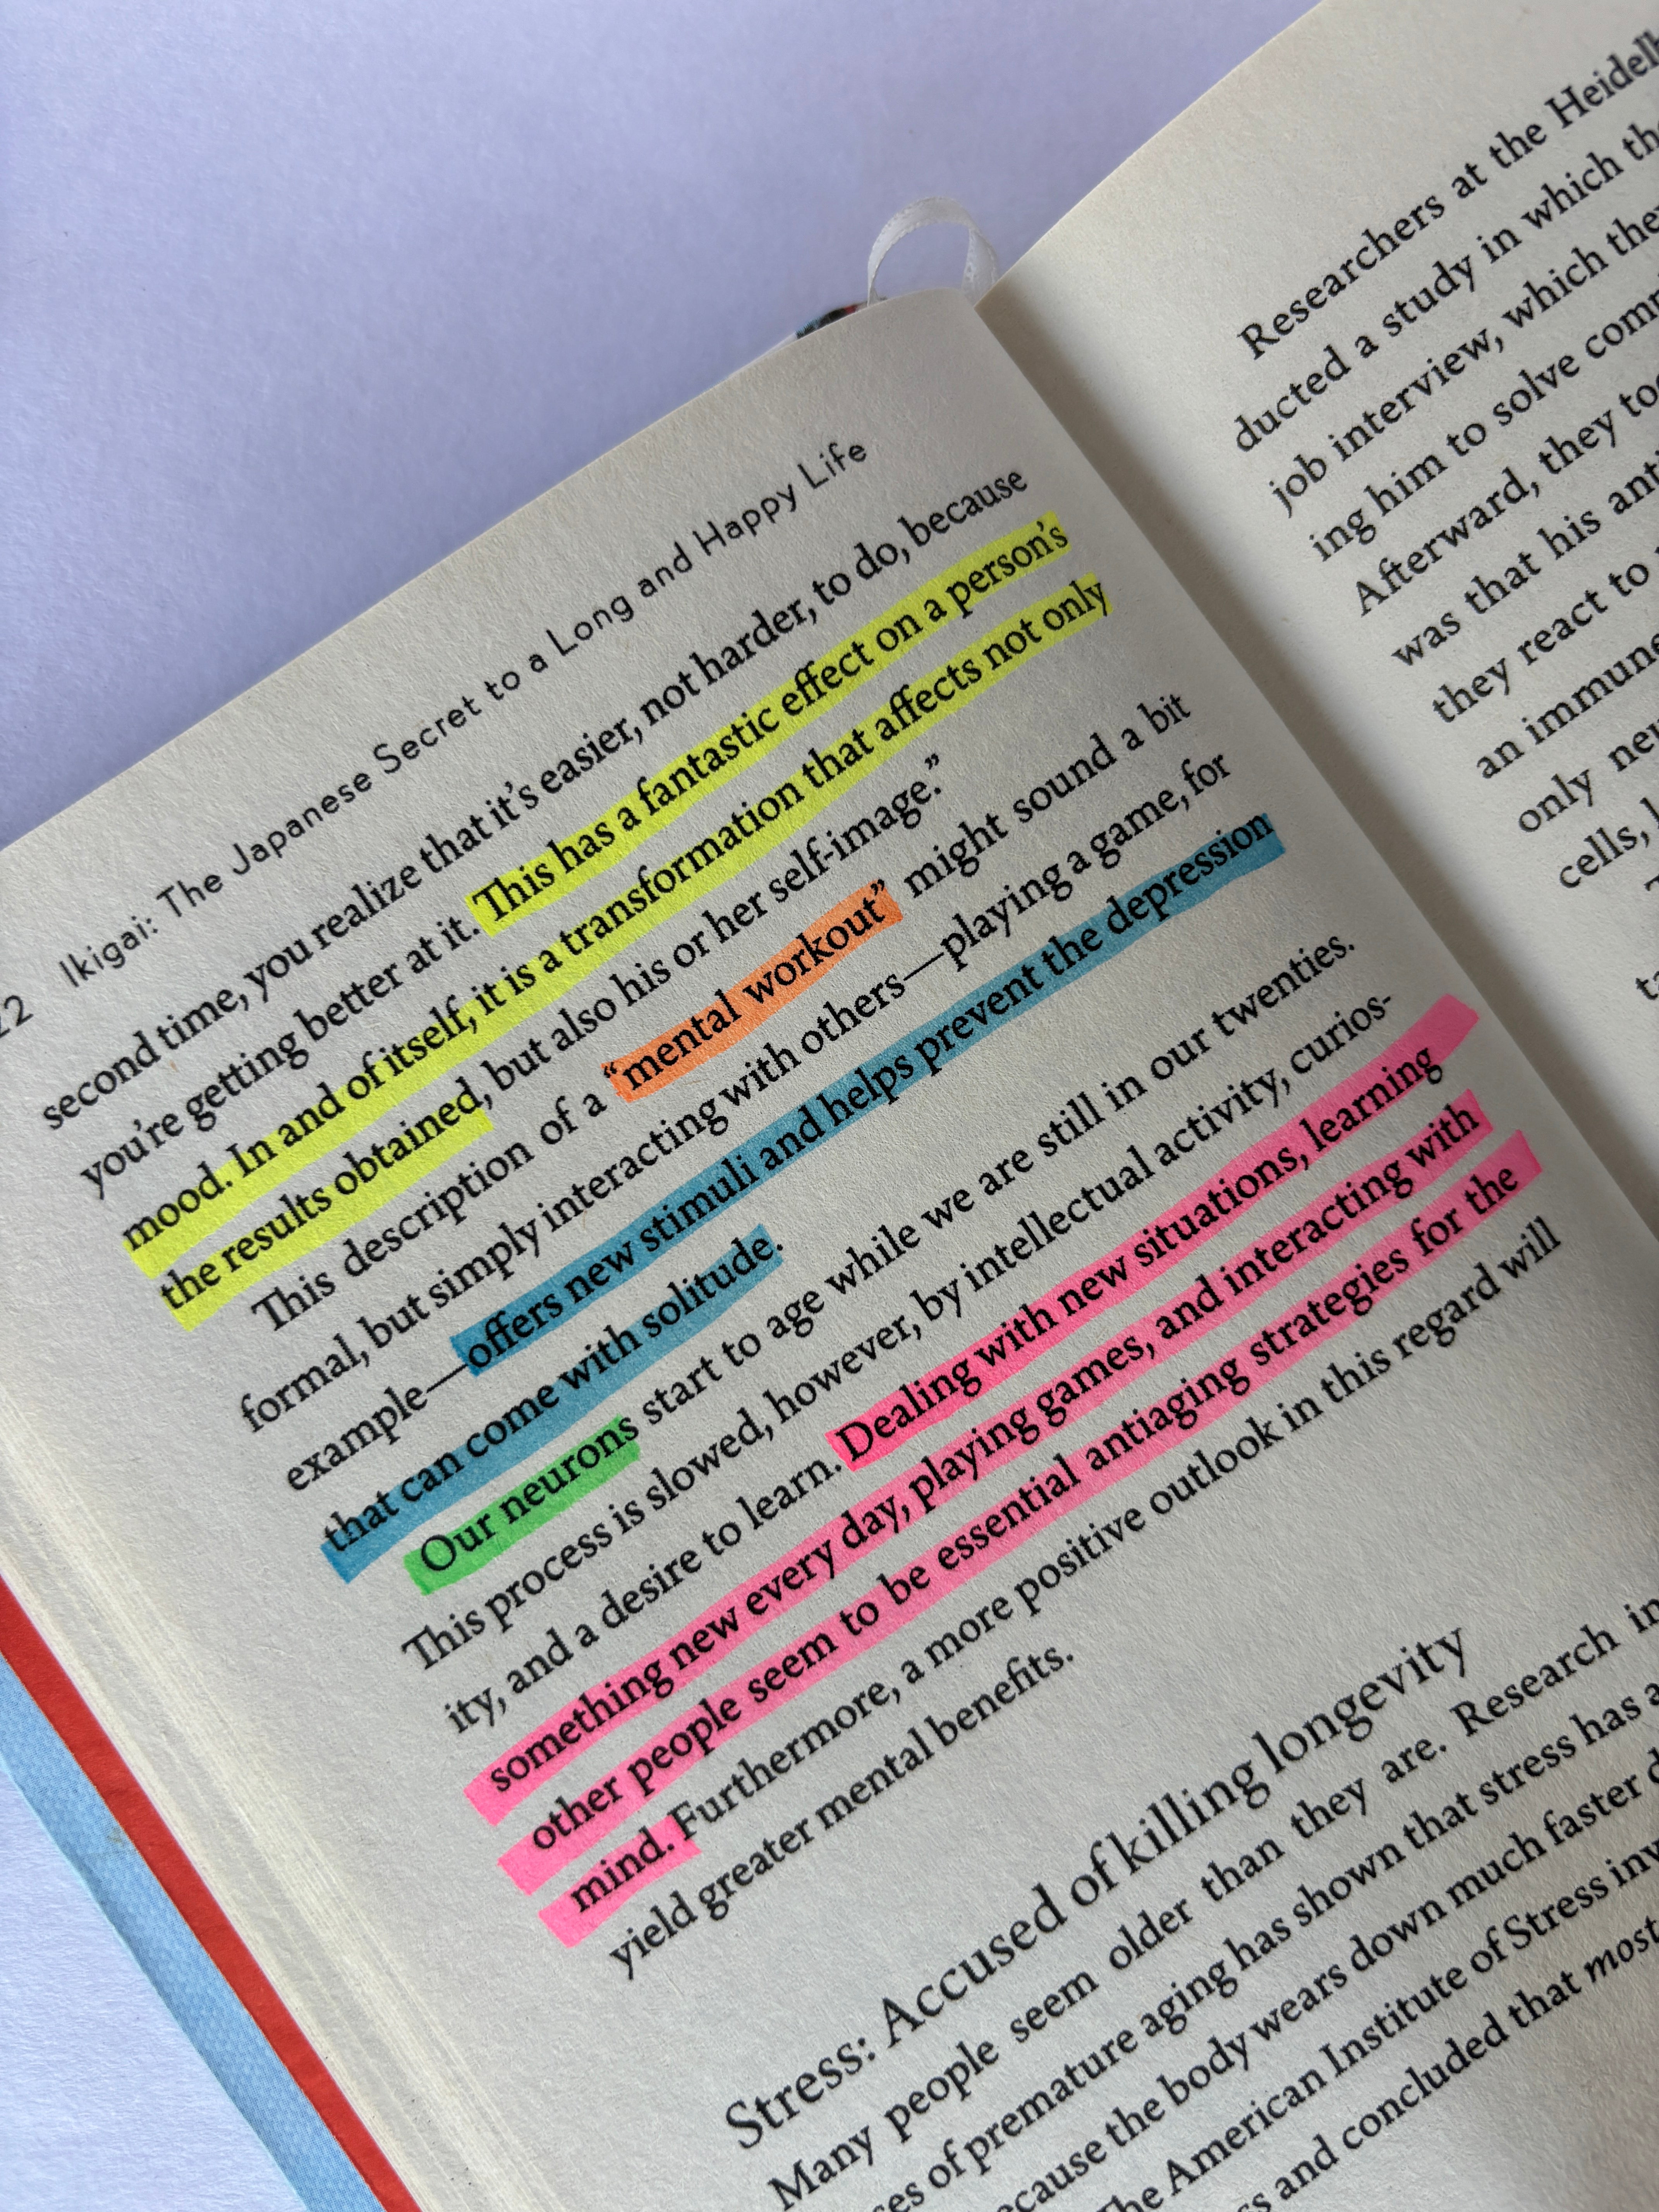 22 Ikigai: The Japanese Secret to a Long and Happy Life
second time, you realize that it's easier, not harder, to do, because
you're getting better at it. This has a fantastic effect on a person's
mood. In and of itself, it is a transformation that affects not only
the results obtained, but also his or her self-image.”
This description of a “mental workout” might sound a bit
formal, but simply interacting with others—playing a game, for
example—offers new stimuli and helps prevent the depression
that can come with solitude.
Our neurons start to age while we are still in our twenties.
This process is slowed, however, by intellectual activity, curios-
ity, and a desire to learn. Dealing with new situations, learning
something new every day, playing games, and interacting with
other people seem to be essential antiaging strategies for the
mind. Furthermore, a more positive outlook in this regard will
yield greater mental benefits.
Stress: Accused of killing longevity
Many people seem older than they are. Research
of premature aging has shown that stress has
the body wears down much faster
American Institute of Stress
and concluded that most
Researchers at the
ducted a study in which
job interview, which
ing him to solve
Afterward, they
was that his
they react to
an immune
only
cells,